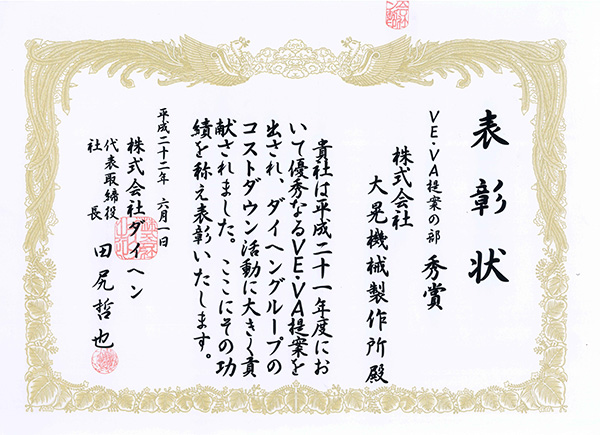 表彰状
VE・VA提案の部 秀賞
株式会社
大晃機械製作所殿
貴社は平成二十一年度にお
いて優秀なるVE・VA提案を
出され、ダイヘングループの
コストダウン活動に大きく貢
献されました。ここにその功
績を称え表彰いたします。
平成二十二年 六月一日
株式会社ダイヘン
代表取締役
社長 田尻哲也